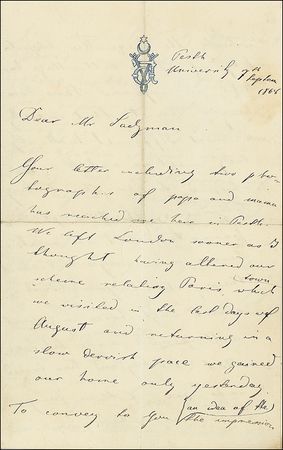 Pesth
University 7th
Septem
1868
Dear Mr
Your letter including two pho-
tographs of papa and mama
has reached me here in Pesth.
We left London sooner as I
thought having altered our
scheme relating Paris which town
we visited in the last days of
August and returning in a
slow dervish pace we gained
our home only yesterday.
To convey to you (an idea of the)
(the impression